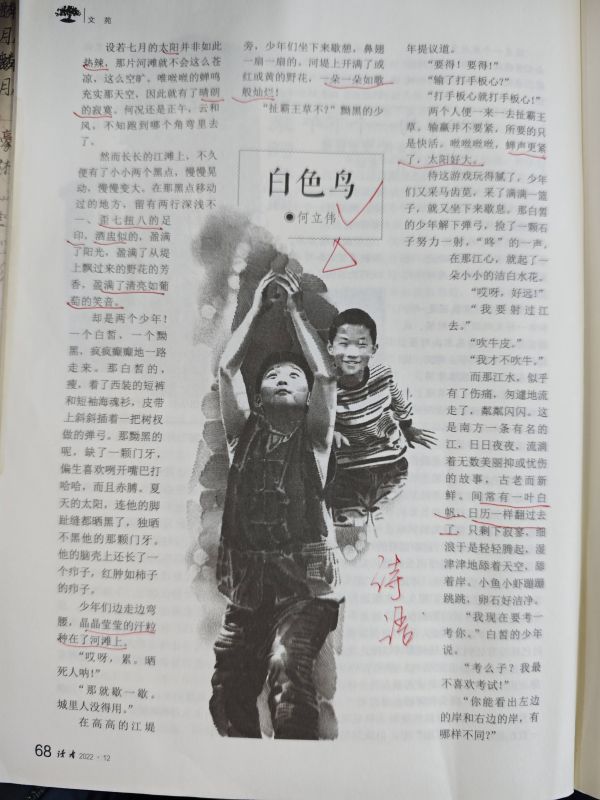 文苑
设若七月的太阳并非如此
热辣，那片河滩就不会这么苍
凉，这么空旷。唯啾啾的蝉鸣
充实那天空，因此就有了晴朗
的寂寞。何况还是正午，云和
风，不知跑到哪个角弯里去
了。
然而长长的江滩上，不久
便有了小小两个黑点，慢慢晃
动，慢慢变大。在那黑点移动
过的地方，留有两行深浅不
一、歪七扭八的足
印，酒盅似的，盈满
了阳光，盈满了从堤
上飘过来的野花的芳
香，盈满了清亮如葡
萄的笑音。
却是两个少年！
一个白皙、一个黝
黑，疯疯癫癫地一路
走来。那白皙的，
瘦，着了西装的短裤
和短袖海魂衫，皮带
上斜斜插着一把树杈
做的弹弓。那黝黑的
呢，缺了一颗门牙，
偏生喜欢咧开嘴巴打
哈哈，而且赤膊。夏
天的太阳，连他的脚
趾缝都晒黑了，独晒
不黑他的那颗门牙。
他的脑壳上还长了一
个疖子，红肿如柿子
的疖子。
少年们边走边弯
腰，晶晶莹莹的汗粒
种在了河滩上。
“哎呀，累。晒
死人呐！”
“那就歇一歇。
城里人没得用。”
在高高的江堤
旁，少年们坐下来歇憩，鼻翅
一扇一扇的。河堤上开满了或
红或黄的野花，一朵一朵如歌
般灿烂！
“扯霸王草不？”黝黑的少
白色鸟
●何立伟
年提议道。
“要得！要得！”
“输了打手板心？”
“打手板心就打手板心！”
两个人便一来一去扯霸王
草。输赢并不要紧，所要的只
是快活。啾啾啾啾，蝉声更紧
了，太阳好大。
待这游戏玩得腻了，少年
们又采马齿苋，采了满满一篮
子，就又坐下来歇息。那白皙
的少年解下弹弓，捡了一颗石
子努力一射，“咚”的一声，
在那江心，就起了一
朵小小的洁白水花。
“哎呀，好远！”
“我要射过江
去。”
“吹牛皮。”
“我才不吹牛。”
而那江水，似乎
有了伤痛，匆遽地流
走了，粼粼闪闪。这
是南方一条有名的
江，日日夜夜，流淌
着无数美丽抑或忧伤
的故事，古老而新
鲜。间常有一叶白
帆，日历一样翻过去
了，只剩下寂寥，细
浪于是轻轻腾起，湿
津津地舔着天空，舔
着岸。小鱼小虾蹦蹦
跳跳，卵石好洁净。
“我现在要考一
考你。”白皙的少年
说。
“考么子？我最
不喜欢考试！”
“你能看出左边
的岸和右边的岸，有
哪样不同？”
诗语
68 读者 2022·12